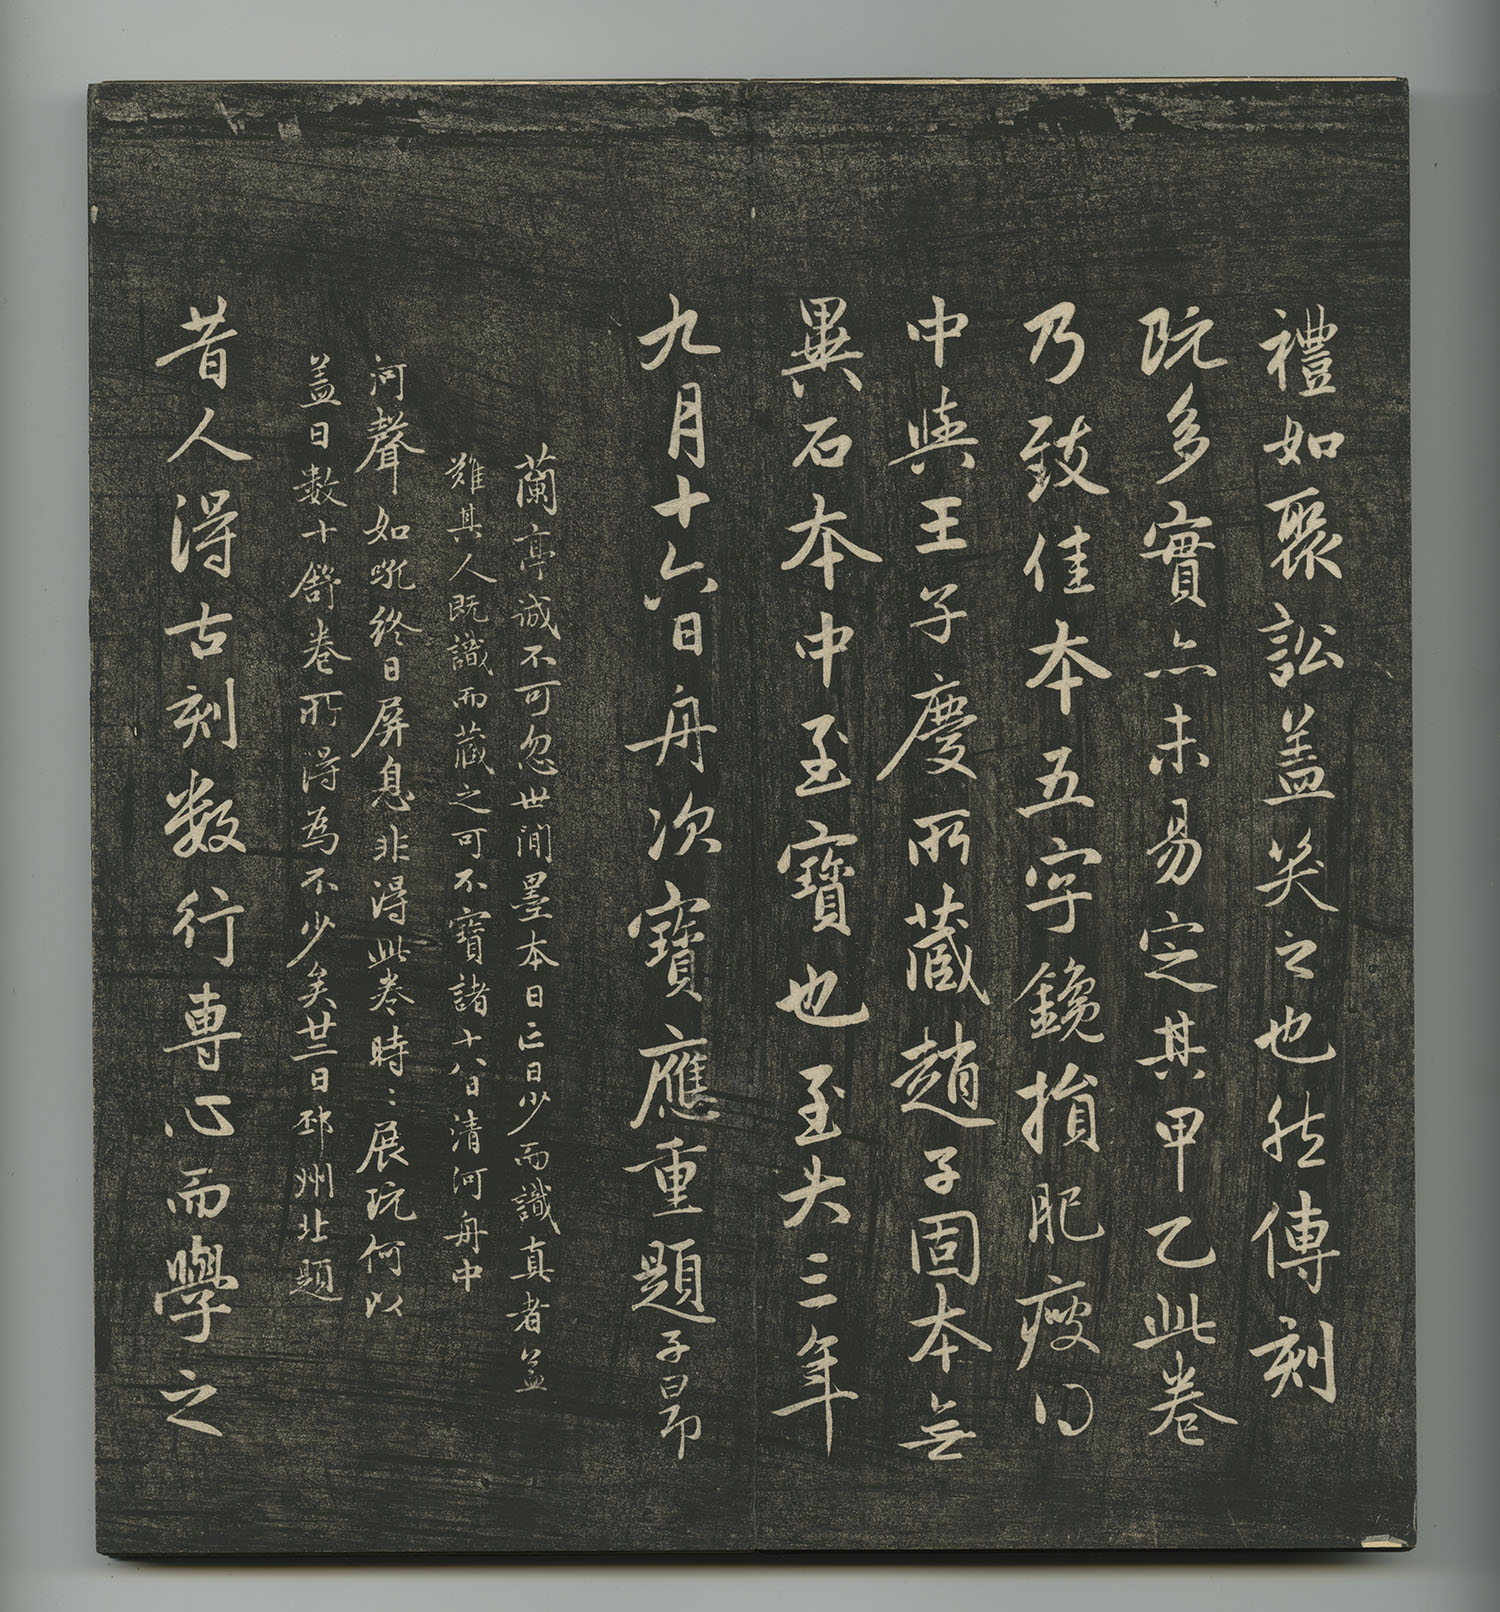 禮如聚訟盖笑之也然傳刻
既多實亦未易定其甲乙此卷
乃致佳本五字鑱損肥瘦得
中與王子慶所藏趙子固本無
異石本中至寶也至大三年
九月十六日舟次寶應重題子昂
蘭亭誠不可忽世間墨本日亡日少而識真者益
難其人既識而藏之可不寶諸十八日清河舟中
河聲如吼終日屏息非得此卷時〻展玩何以
盖日數十舒卷所得為不少矣廿二日邳州北題
昔人得古刻数行専心而學之